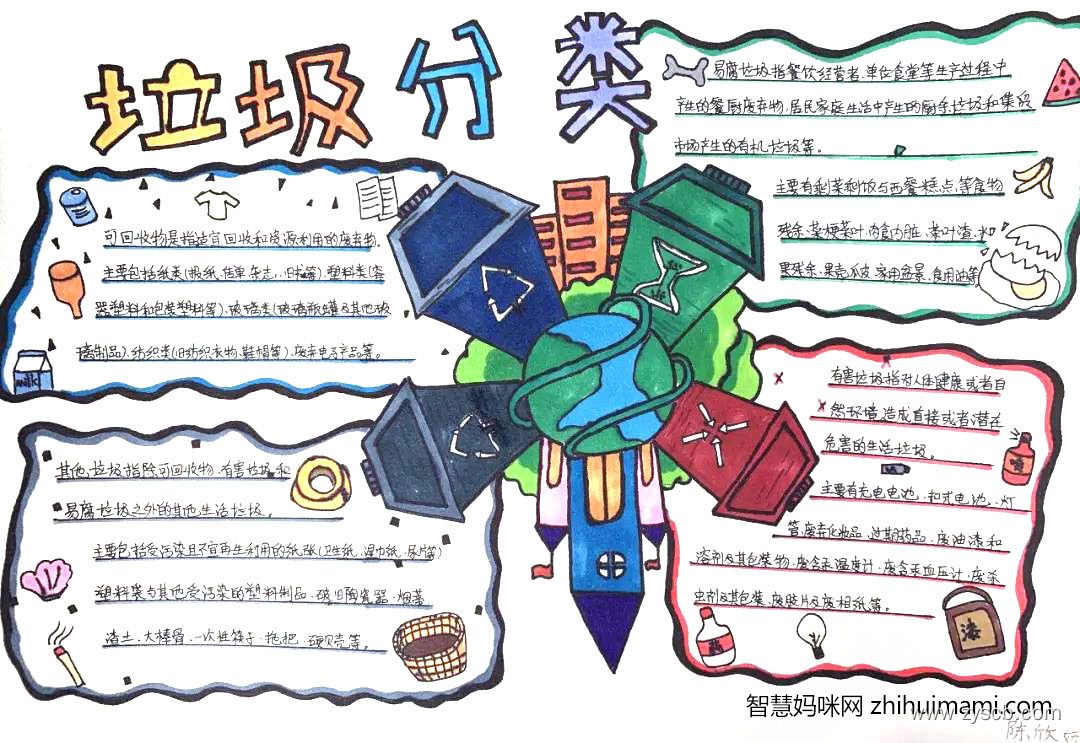 垃圾分类
可回收物是指适宜回收和资源利用的废弃物.
主要包括纸类(报纸,传单,杂志,旧书等).塑料类(容
器塑料和包装塑料等).玻璃类(玻璃瓶罐及其他玻
璃制品).纺织类(旧纺织衣物,鞋帽等).废弃电子产品等。
milk
易腐垃圾指餐饮经营者.单位食堂等生产过程中
产生的餐厨废弃物.居民家庭生活中产生的厨余垃圾和集贸
市场产生的有机垃圾等。
主要有剩菜剩饭与西餐糕点等食物
残余.菜梗菜叶.肉食内脏.茶叶渣.水
果残余.果壳瓜皮.家用盆景.食用油等
其他垃圾指除可回收物.有害垃圾和
易腐垃圾之外的其他生活垃圾。
主要包括受污染且不宜再生利用的纸张(卫生纸.湿巾纸.尿片等)
塑料袋与其他受污染的塑料制品.破旧陶瓷器.烟蒂
渣土.大棒骨.一次性筷子.拖把.硬贝壳等。
有害垃圾指对人体健康或者自
然环境造成直接或者潜在
危害的生活垃圾。
主要有充电电池.扣式电池..灯
管.废弃化妆品.过期药品.废油漆和
溶剂及其包装物.废含汞温度计.废含汞血压计.废杀
虫剂及其包装.废胶片及废相纸等。
漆
智慧妈咪网 zhihuimami.com
www.zyscb.com
陈欣妍